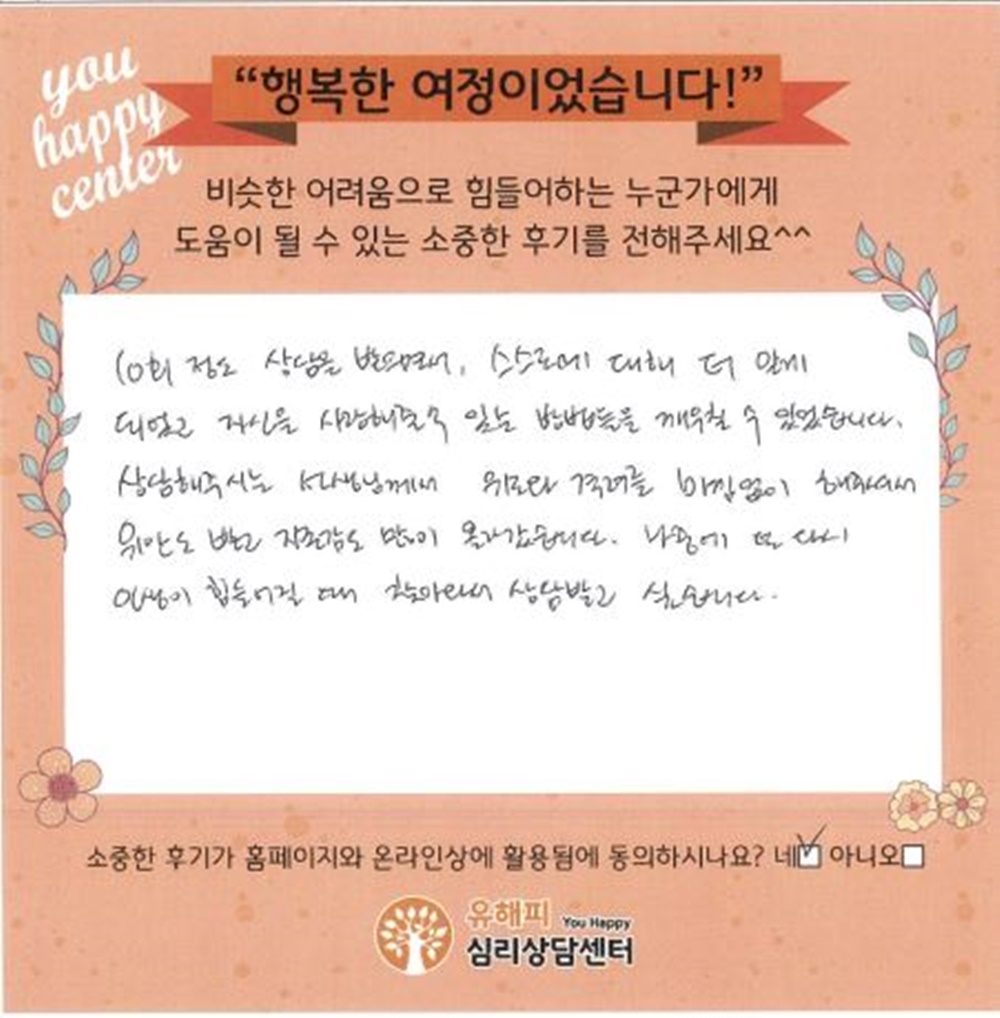 you
happy
center
“행복한 여정이었습니다!”
비슷한 어려움으로 힘들어하는 누군가에게
도움이 될 수 있는 소중한 후기를 전해주세요^^
10회 정도 상담을 받으면서, 스스로에 대해 더 알게
되었고 자신을 사랑해줄 수 있는 방법들을 깨우칠 수 있었습니다.
상담해주시는 선생님께서 위로와 격려를 아낌없이 해주셔서
위안도 받고 자존감도 많이 올라갔습니다. 나중에 또 다시
인생이 힘들어질 때 찾아와서 상담받고 싶습니다.
소중한 후기가 홈페이지와 온라인상에 활용됨에 동의하시나요? 네 아니오
유해피 You Happy
심리상담센터